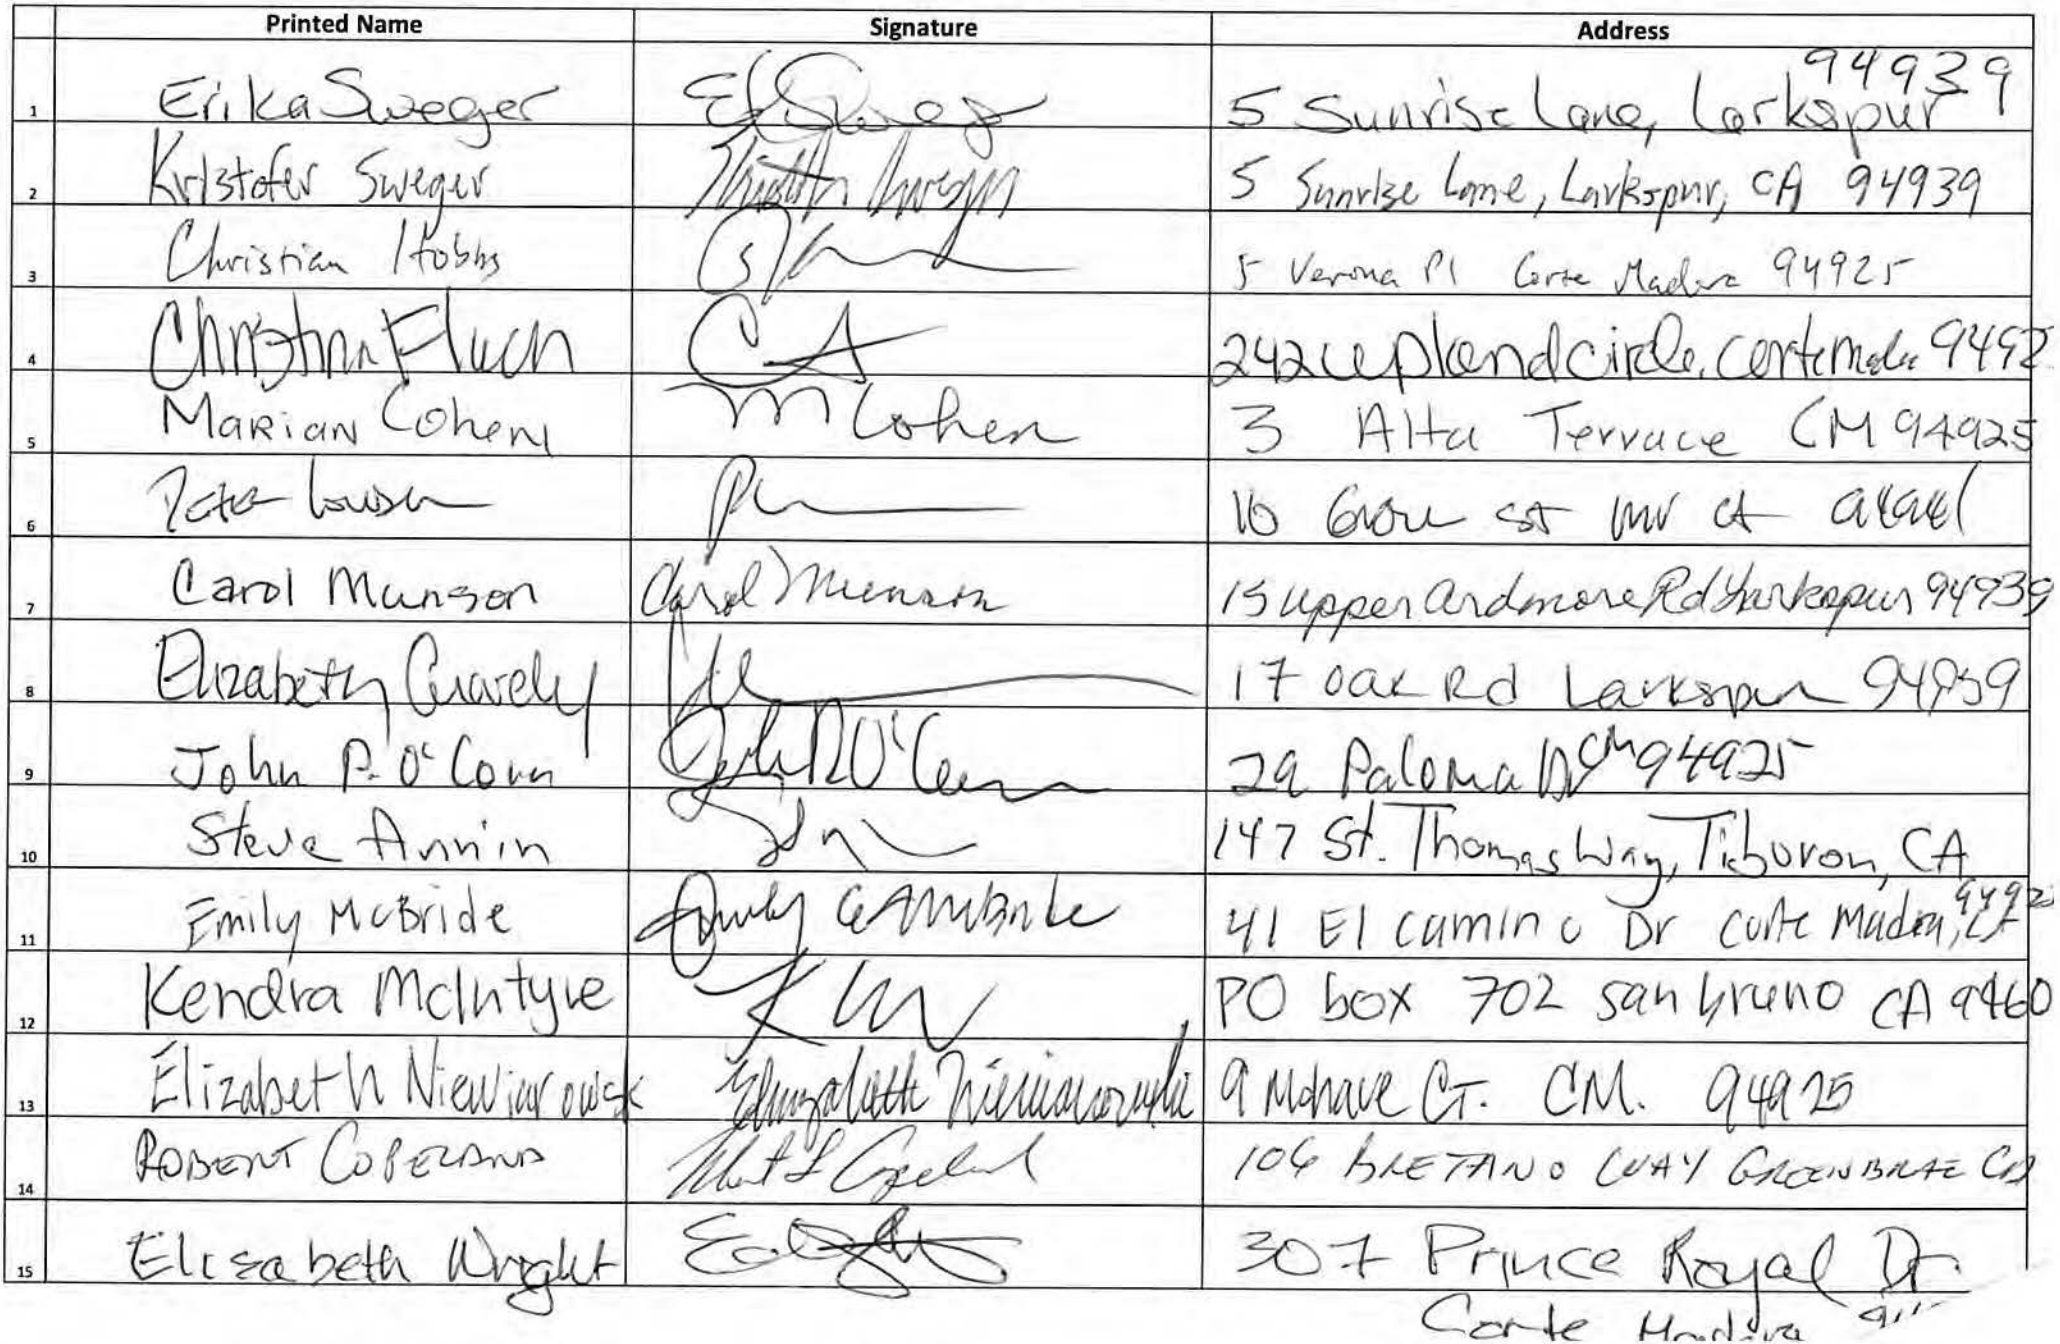 Printed Name Signature Address
1 Erika Sweger 5 Sunrise Lane, Larkspur 94939
2 Kristofer Sweger 5 Sunrise Lane, Larkspur, CA 94939
3 Christian Hobbs 5 Verona Pl Corte Madera 94925
4 242 upland circle, corte 9492
5 Marian Cohen M Cohen 3 Alta Terrace CM 94925
6 Peter 16 st mv CA
7 Carol Munson Carol Munson 15 upper ardmore Rd Larkspur 94939
8 Elizabeth 17 Oak Rd Larkspur 94939
9 John P. O'Conn John P O'Conn 29 Paloma Dr CM 94925
10 Steve Annin 147 St. Thomas Way, Tiburon, CA
11 Emily McBride 41 El camino Dr Corte Madera, 9492
12 Kendra McIntyre KM PO box 702 san bruno CA 9460
13 Elizabeth Niewiarowsk Elizabeth Niewiarowski 9 Mohave Ct. CM. 94925
14 ROBERT COPELAND Copeland 106 BRETANO WAY GREENBRAE CA
15 Elisabeth Wright 307 Prince Royal Dr
Corte Madera